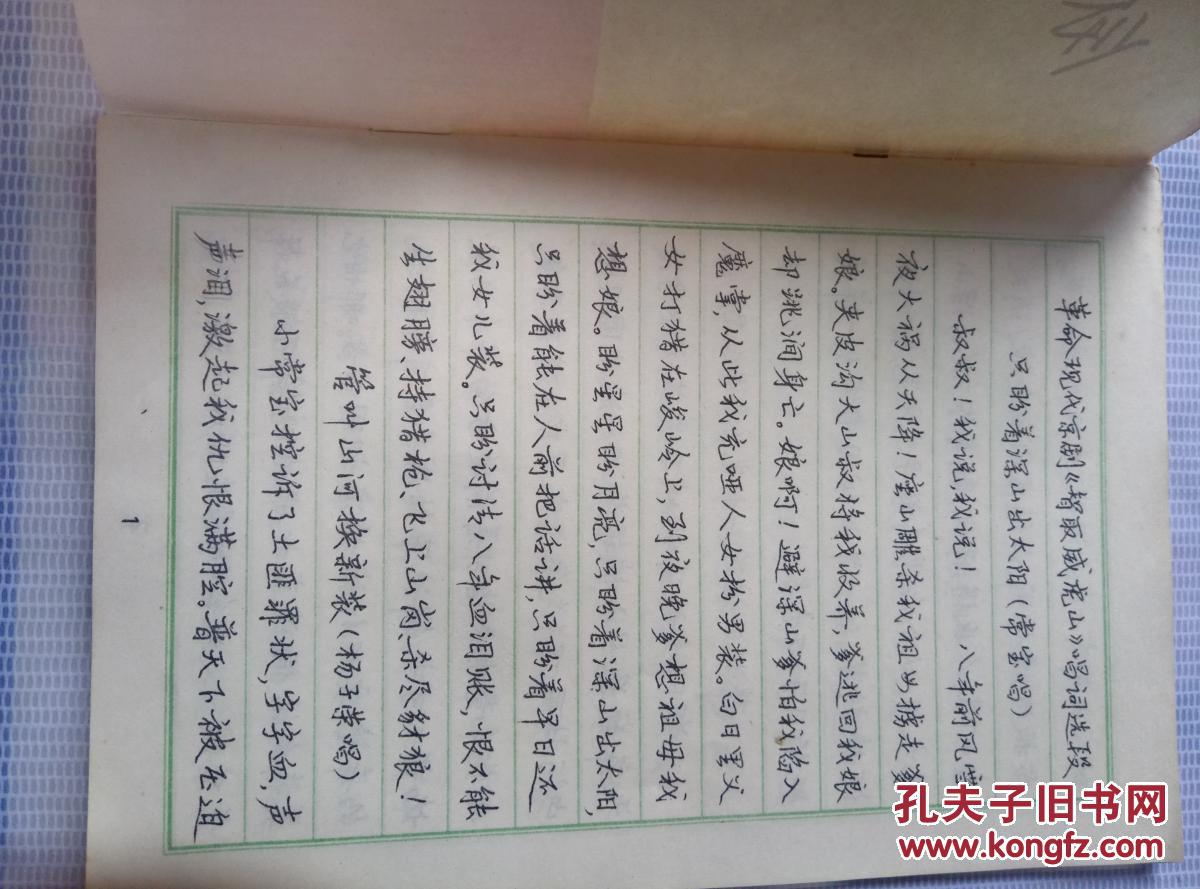 革命现代京剧《智取威虎山》唱词选段
只盼着深山出太阳(常宝唱)
叔叔!我说,我说!八年前风雪
夜大祸从天降!座山雕杀我祖母掳走爹
娘。夹皮沟大山叔将我收养,爹逃回我娘
却跳涧身亡。娘啊!避深山爹怕我陷入
魔掌,从此我充哑人女扮男装。白日里父
女打猎在峻岭上,到夜晚爹想祖母我
想娘。盼星星盼月亮,只盼着深山出太阳,
只盼着能在人前把话讲,只盼着早日还
我女儿装。只盼讨清八年血泪账,恨不能
生翅膀、持猎枪、飞上山岗、杀尽豺狼!
管叫山河换新装(杨子荣唱)
小常宝控诉了土匪罪状,字字血,声
声泪,激起我仇恨满腔。普天下被压迫
1
孔夫子旧书网
www.kongfz.com